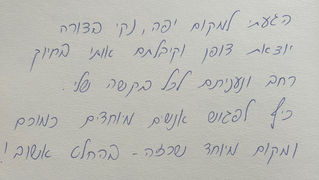 הגעתי למקום יפה, נקי בצורה
יוצאת דופן וקיבלתם אותי בחיוך
רחב ונעניתם לכל בקשה שלי.
כיף לפגוש אנשים מיוחדים כמוכם
ומקום מיוחד שכזה - בהחלט אשוב!